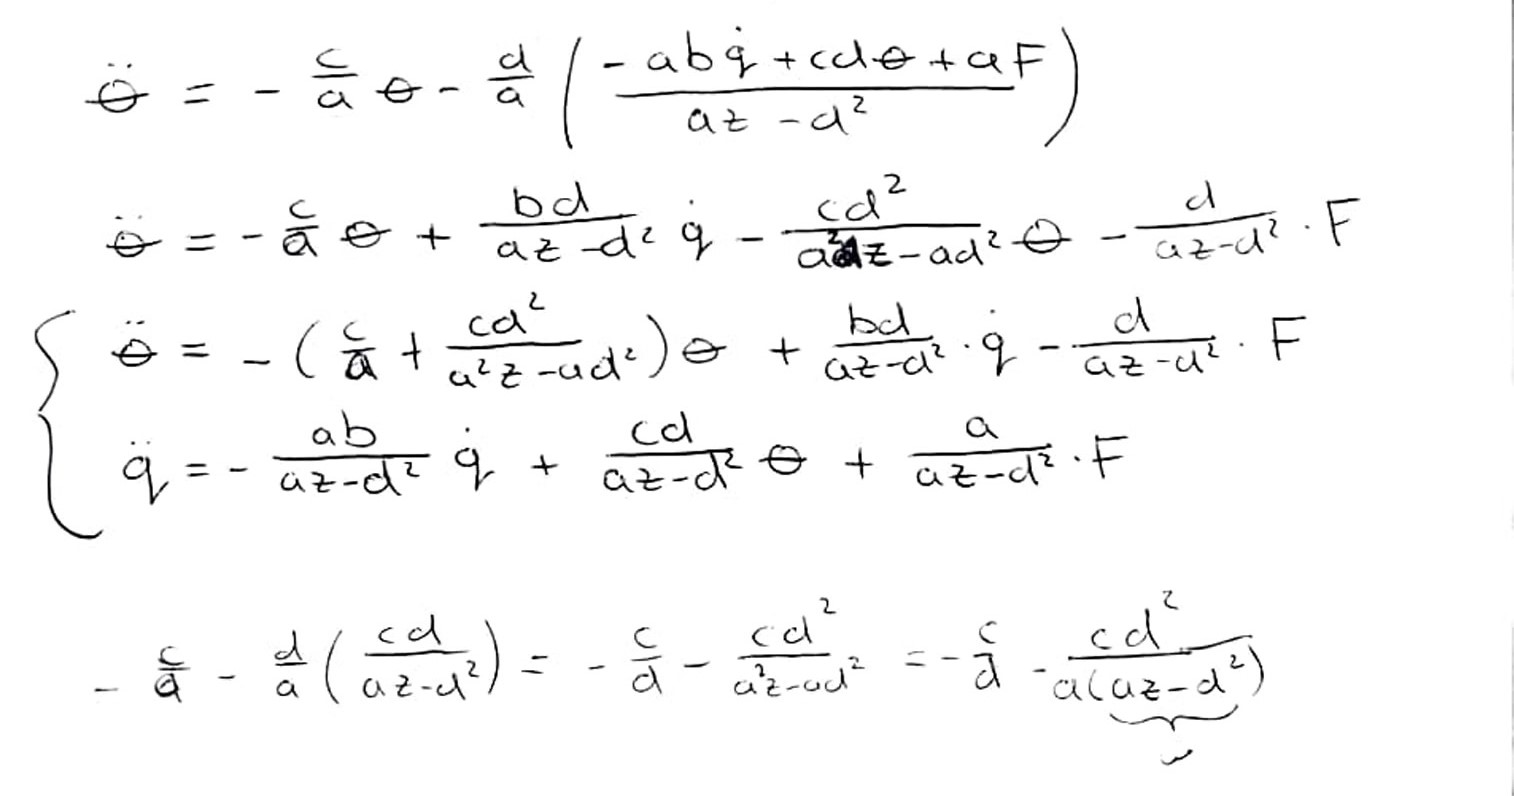 θ̈ = - c/a θ - d/a ( (-abq̇ + cdθ + aF) / (az - d²) )
θ̈ = - c/a θ + bd/(az - d²) q̇ - cd²/(a²z - ad²) θ - d/(az - d²) · F
θ̈ = - ( c/a + cd²/(a²z - ad²) ) θ + bd/(az - d²) · q̇ - d/(az - d²) · F
q̈ = - ab/(az - d²) q̇ + cd/(az - d²) θ + a/(az - d²) · F
- c/a - d/a ( cd/(az - d²) ) = - c/d - cd²/(a²z - ad²) = - c/d - cd²/(a(az - d²))